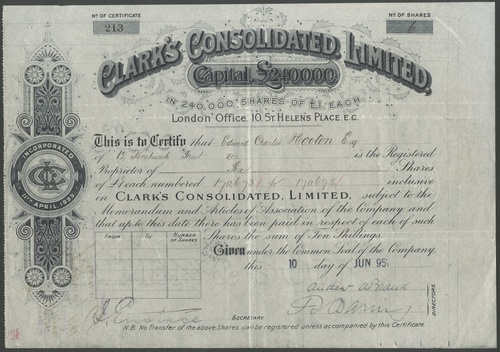 No OF CERTIFICATE
213
No OF SHARES
6
CLARK'S CONSOLIDATED LIMITED,
Capital, £240000
IN 240,000 SHARES OF £1 EACH
London Office, 10, St Helens Place, E.C.
This is to Certify that Edward Charles Hooton Esq
of is the Registered
Proprietor of Six Shares
of £1 each, numbered to inclusive
in CLARK'S CONSOLIDATED, LIMITED, subject to the
Memorandum and Articles of Association of the Company and
that up to this date there has been paid in respect of each of such
Shares the sum of Ten Shillings.
Given under the Common Seal of the Company,
this 10 day of JUN 95
INCORPORATED
11TH APRIL 1895
FROM TO NUMBER OF SHARES
DIRECTORS
SECRETARY
N.B. No Transfer of the above Shares can be registered unless accompanied by this Certificate.